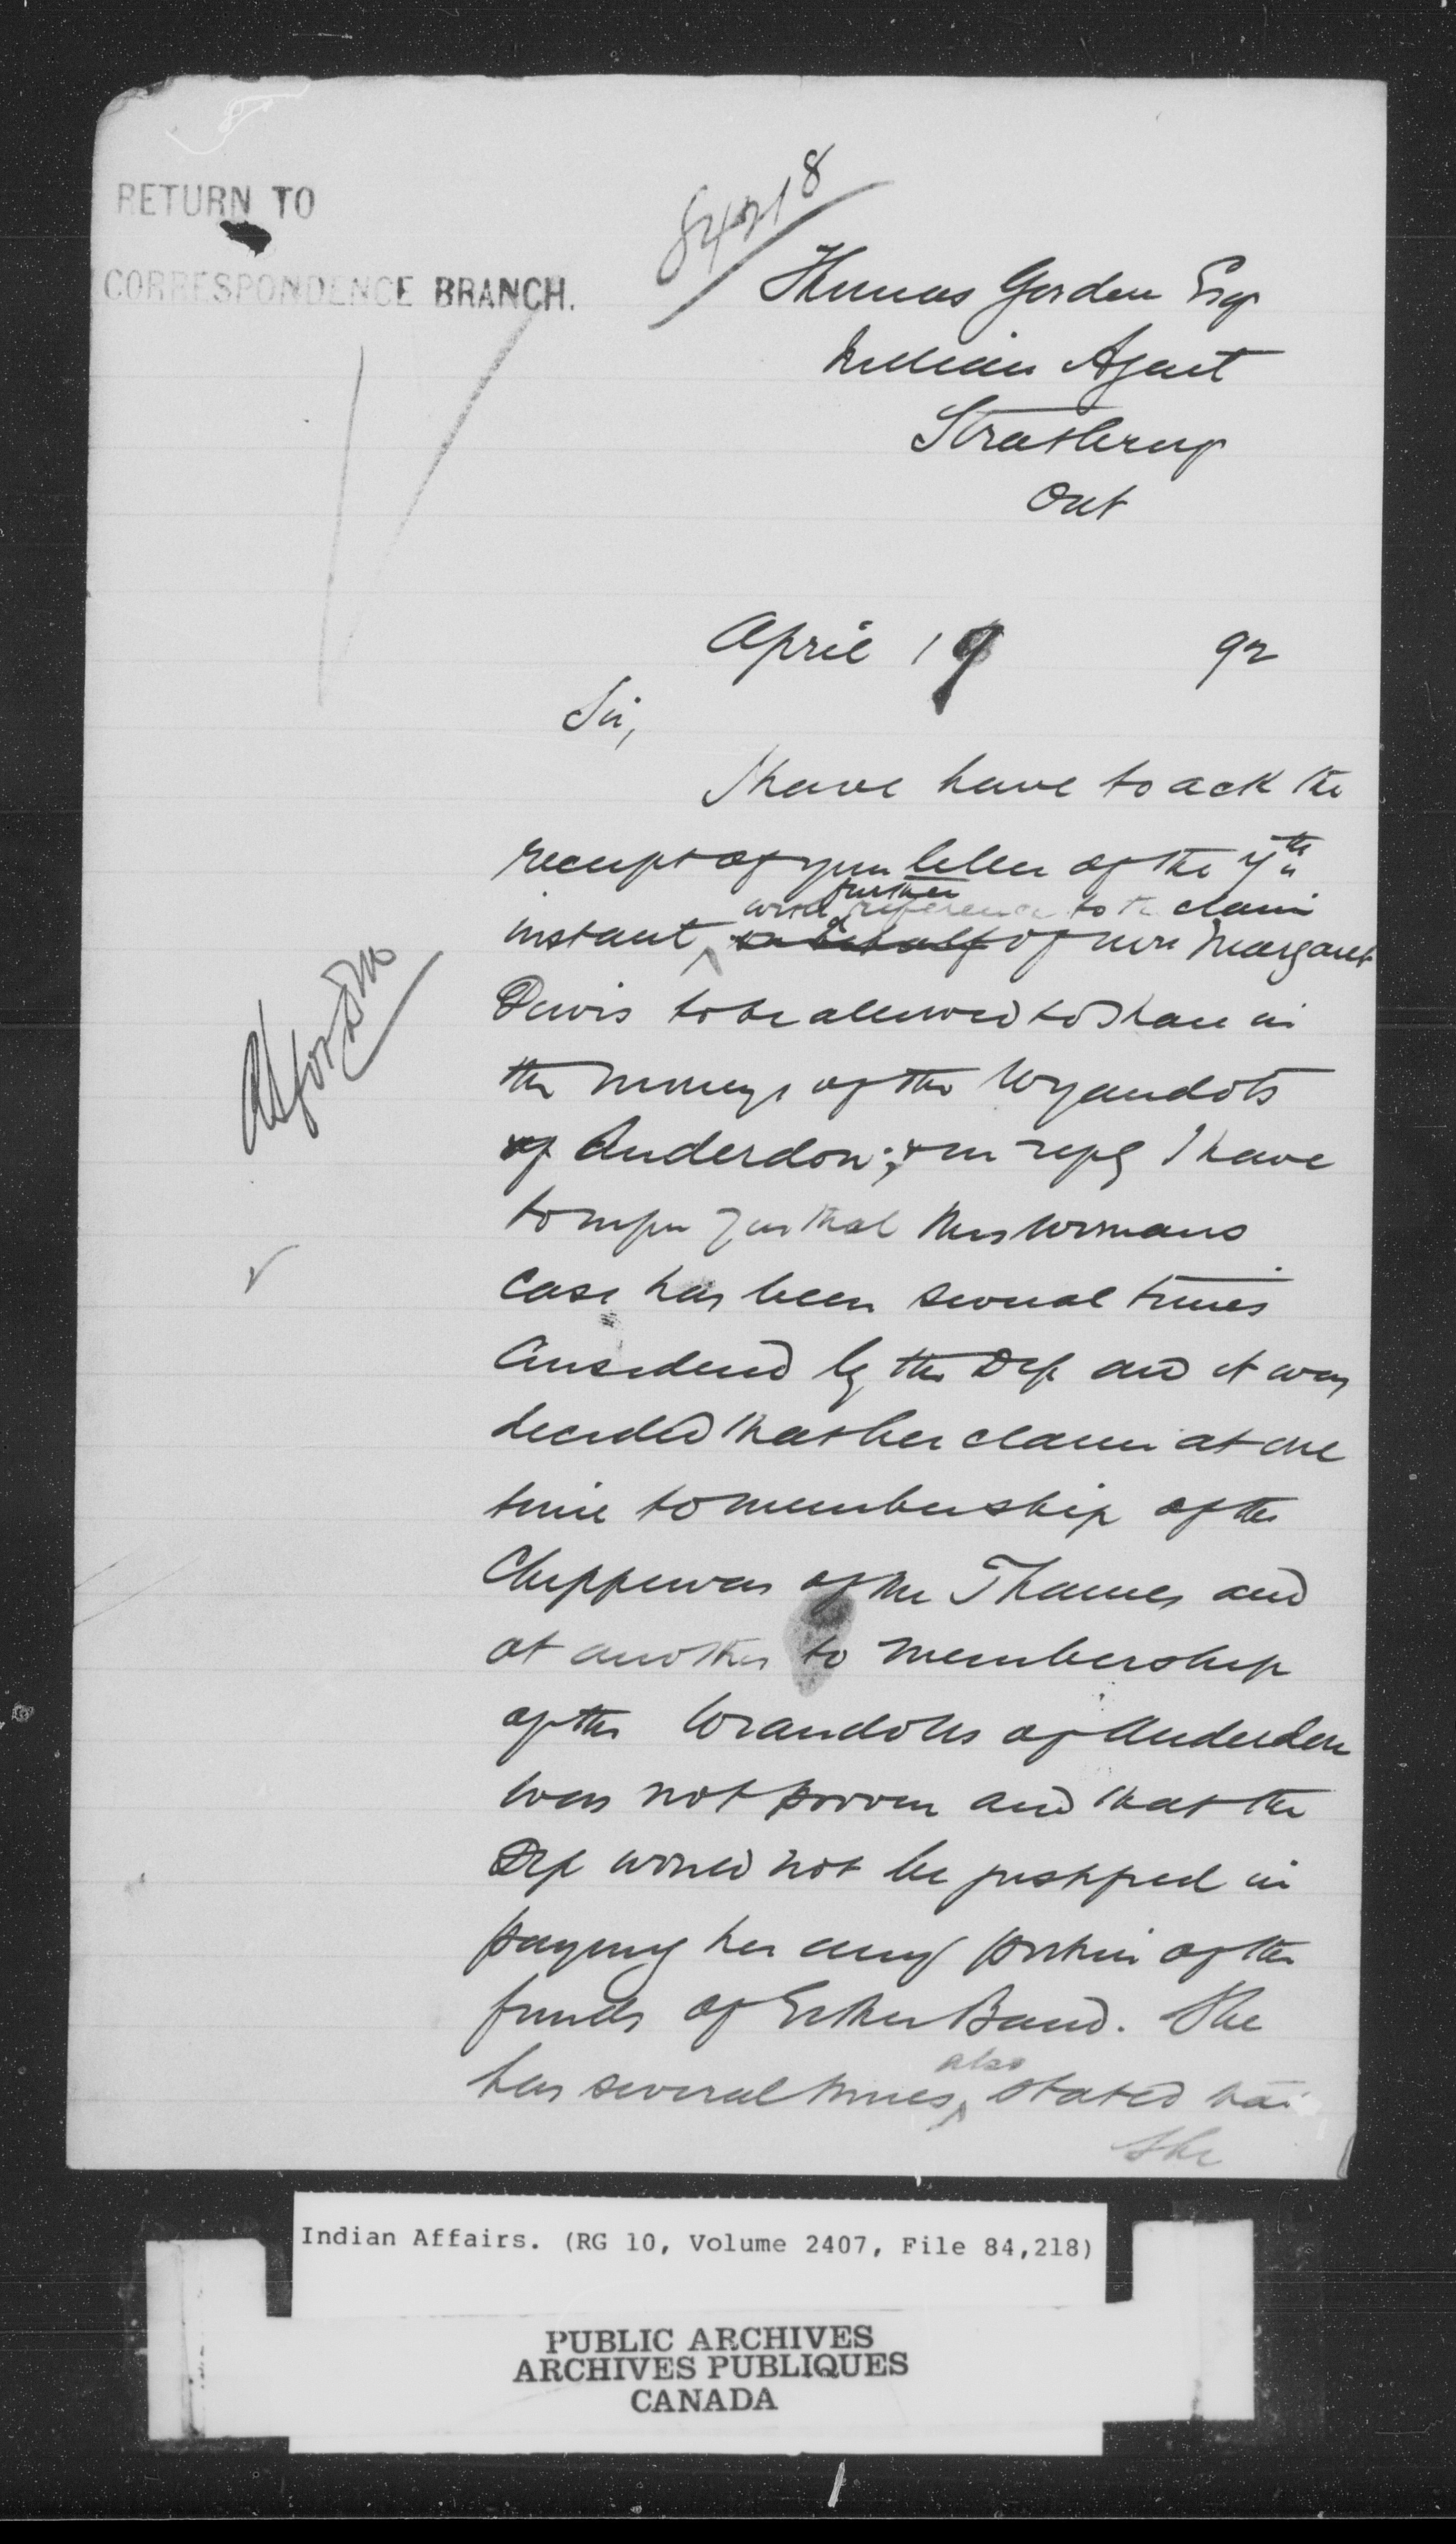 RETURN TO
CORRESPONDENCE BRANCH.
84218
Thomas Gordon Esq
Indian Agent
Strathroy
Ont
April 19 92
Sir,
I have have to ack the
receipt of your letter of the 7th
instant, with further reference to the claim
on behalf of Mrs Margaret
Davis to be allowed to share in
the moneys of the Wyandots
of Anderdon; & in reply I have
to inform you that this womans
case has been several times
considered by the Dep and it was
decided that her claim at one
time to membership of the
Chippewas of the Thames and
at another to membership
of the Wandotts of Anderdon
was not proven and that the
Dep would not be justified in
paying her any portion of the
funds of Either Band. She
has several times, also stated that
she
Indian Affairs. (RG 10, Volume 2407, File 84,218)
PUBLIC ARCHIVES
ARCHIVES PUBLIQUES
CANADA